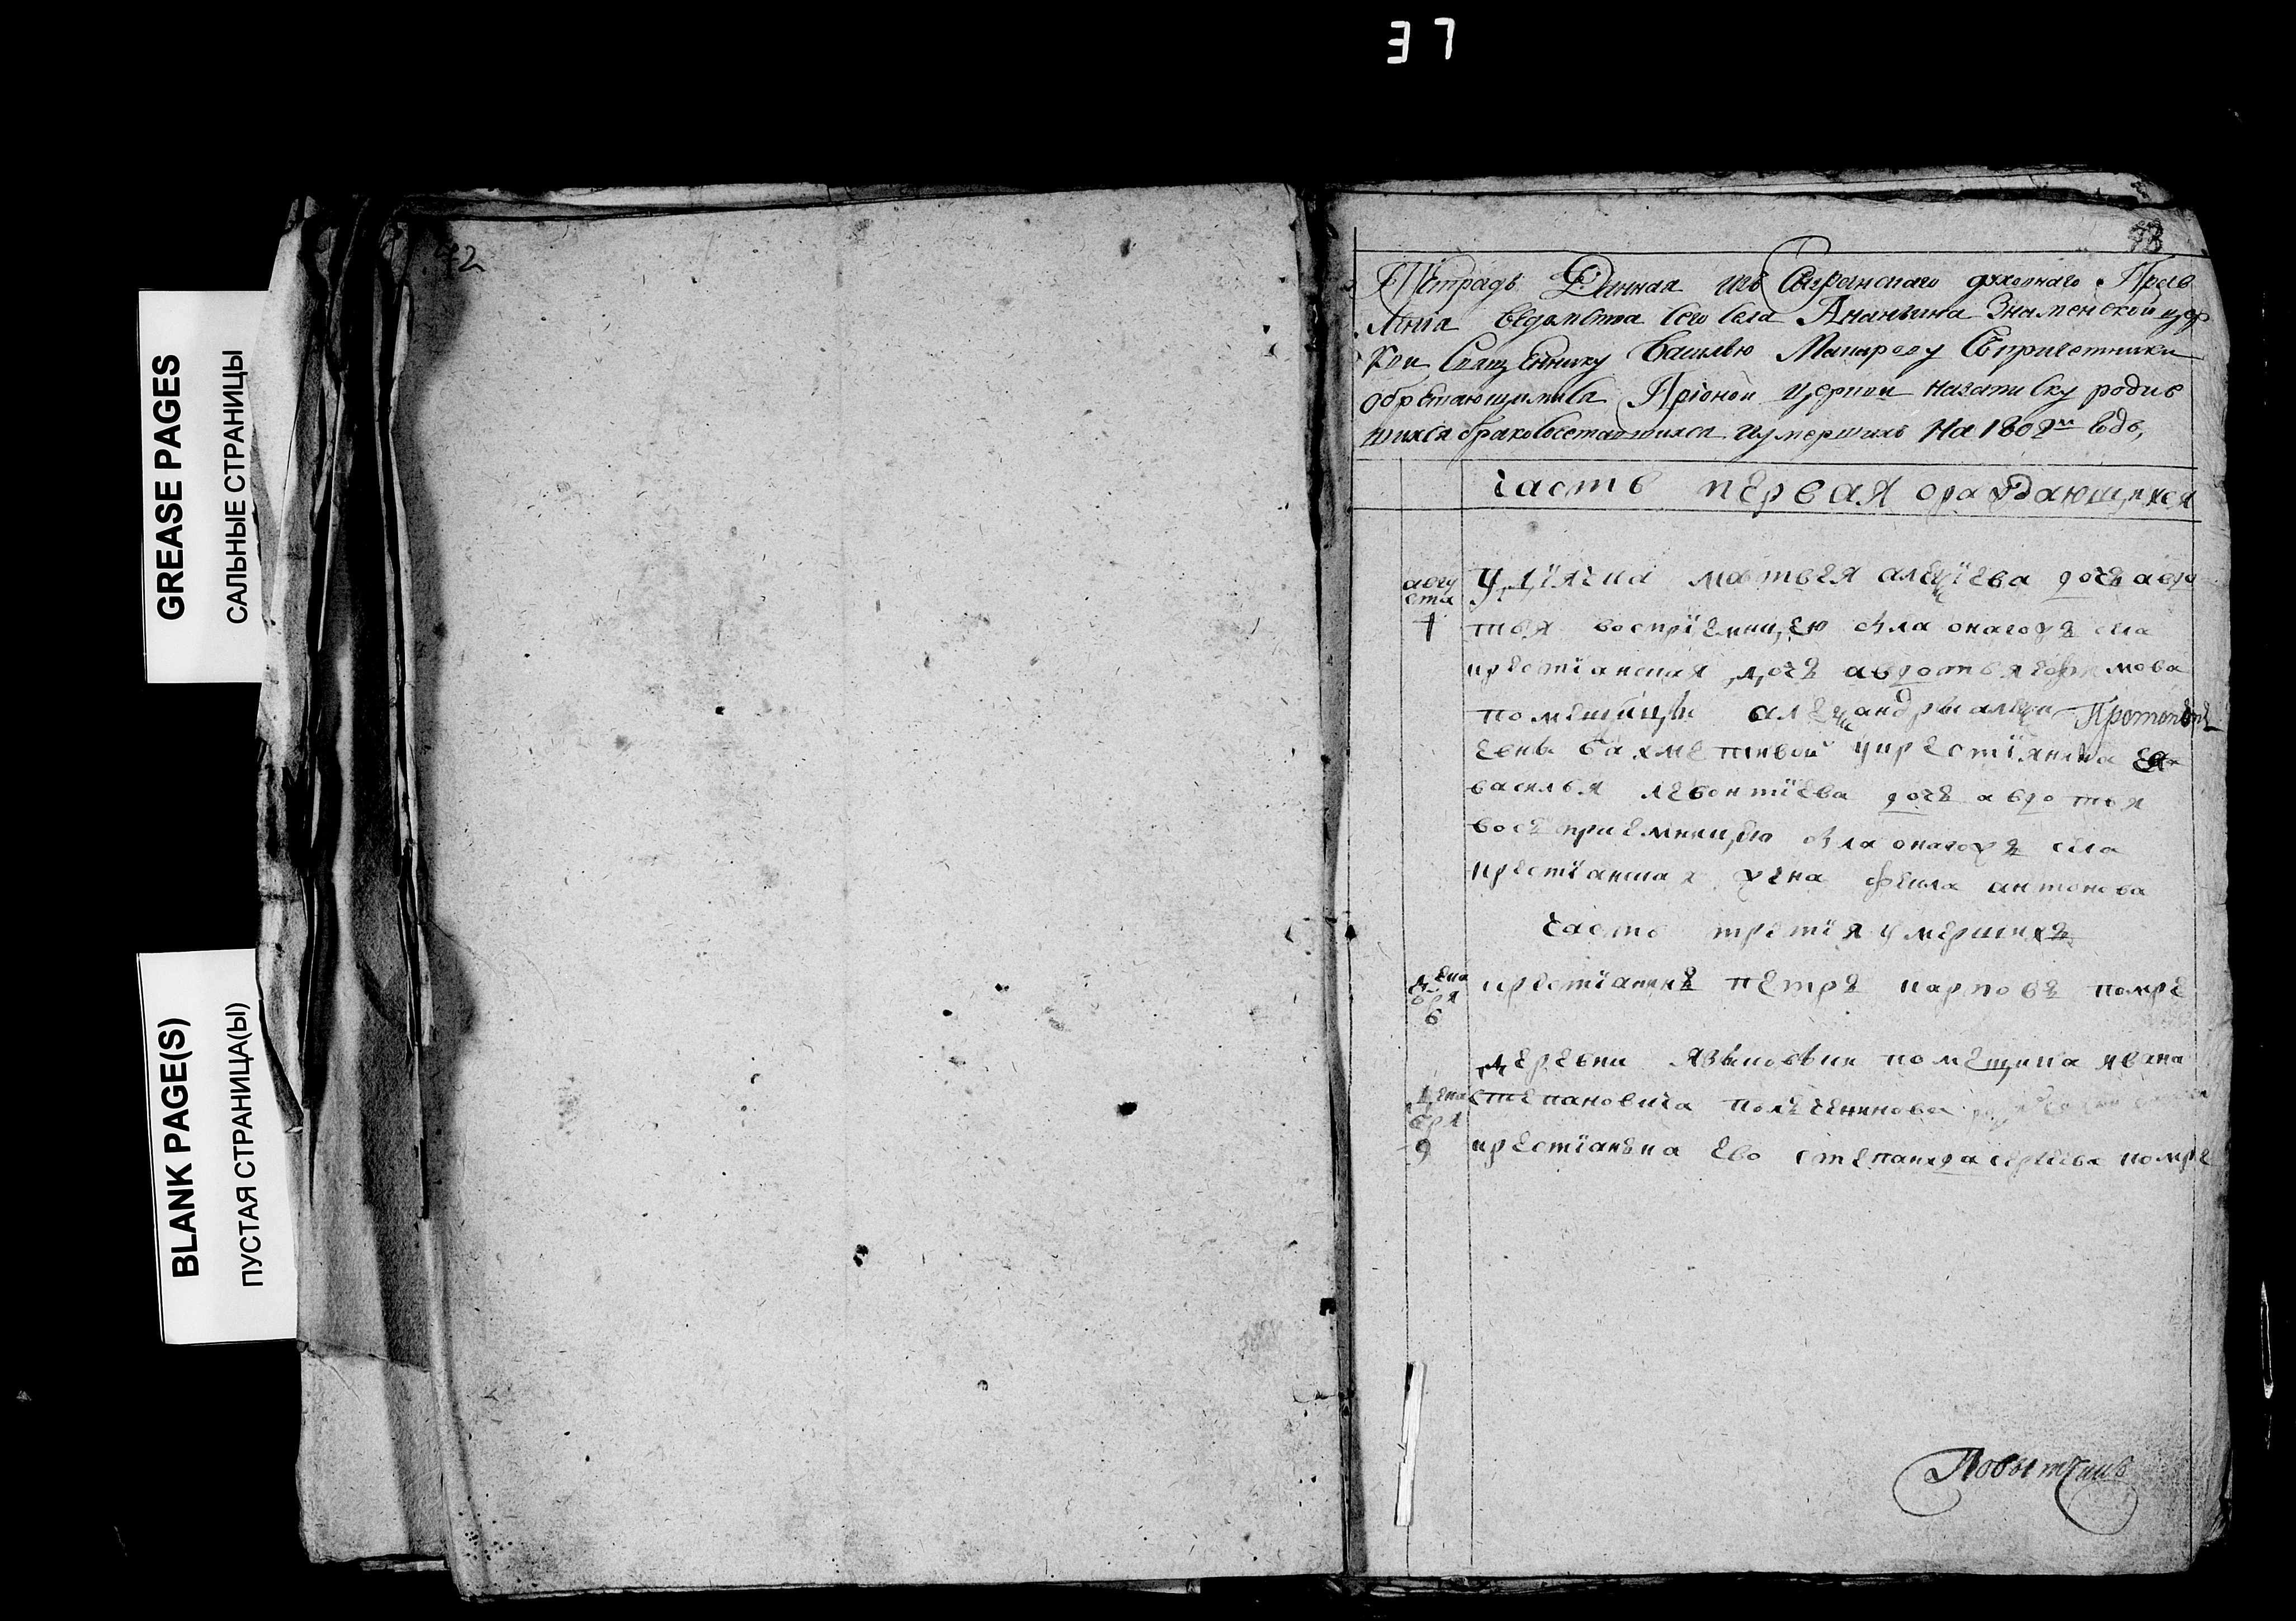 37
GREASE PAGES
САЛЬНЫЕ СТРАНИЦЫ
BLANK PAGE(S)
ПУСТАЯ СТРАНИЦА(Ы)
42
43
Тетрадь Данная изъ Сызранскаго духовнаго Прав
ленiа ведомства села Ананьина Знаменской цер
кви Священнику Василью Макарову Съпричетники
обретающимися Прионой церкви назаписку родив
шихся браковосочетавшихся иумершихъ На 1802й годъ,
часть первая ораждающихся
авгу
ста
1
У дiячка матвея алеѯiева дочь авдо
тья воспрiемницею была оногожъ села
крестiанская дочь авдотья ефимова
помещицы алеѯандры алеѯи
евны бахметивой укрестiянина ея
василья левонтiева дочь авдотья
восъприемницею была оногожъ села
крестiанская жена фекла антонова
часть третiя умершихъ
дека
бря
6
крестiанинъ петръ карповъ помре
деревни помещика ивана
дека
бря
9
степановича
крестiанка ево степанида сергеева помре
Повытчикъ